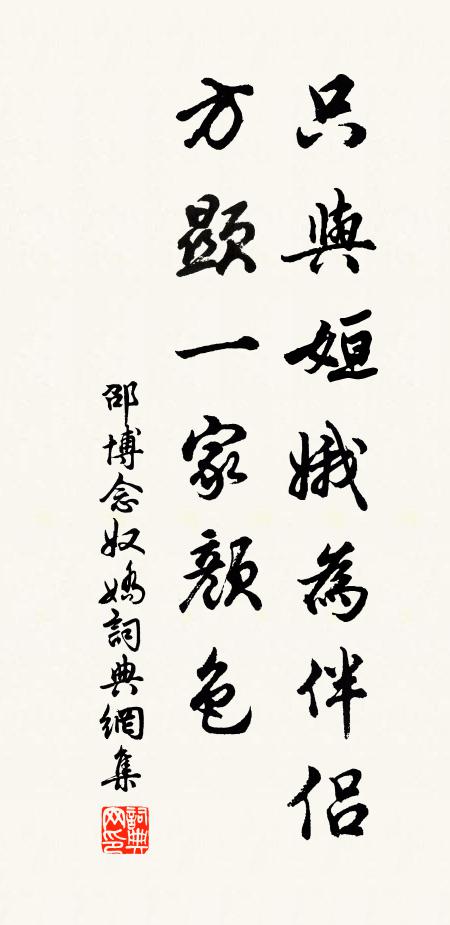 只與姮娥為伴侶
方顯一家顏色
邵博念奴嬌詞典網集
詞典網印